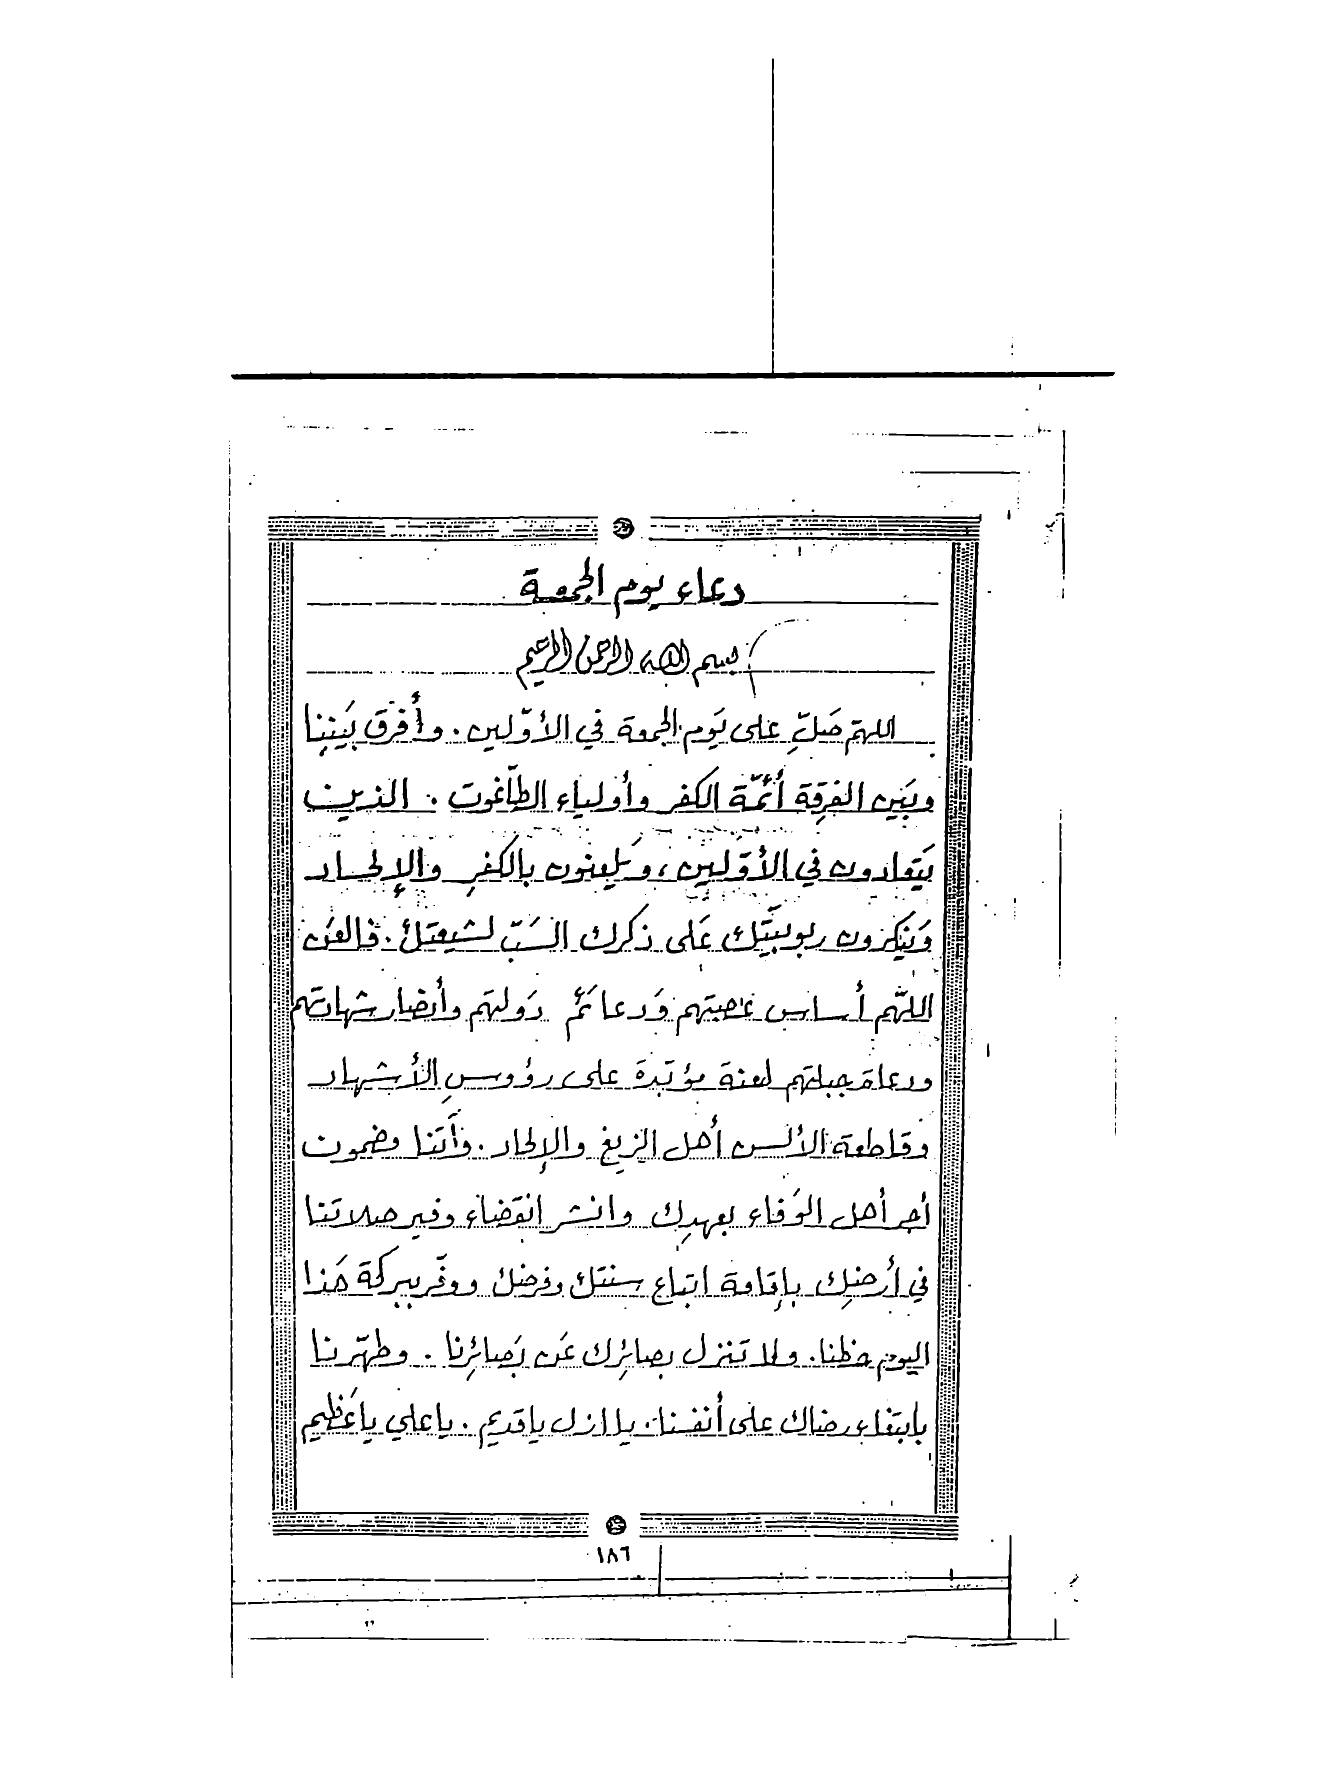 دعاء يوم الجمعة
بسم الله الرحمن الرحيم
اللهمّ صَلِّ على يَوم الجمعة في الأوّلين . وأُفرق بَيننِا
وبَين الفرِقة أئمّة الكفر وأولياء الطّاغوت . الذين
يَتعادون في الأوّلين ، ويَلعنون بالكفرِ والإلحاد
وَينكرون ربوبيَّتك عَلى ذكرك السَبّ لشيعتك . فالعَن
اللهّم أساس عَصبتهم وَدعائم دَولتهم وأنصار شهادتهم
ودعامة جبلتهم لعنة مؤبّدة على رؤوسِ الأشهاد
وقاطعة الألسن أهل الزيغ والإلحاد . وآتنا مضمون
أجر أهل الوَفاء بعهدِك وانشر انقضاء وفير صلاتنا
في أرضِك بإقامة اتباع سنتك وفرضك ووفّر ببركة هَذا
اليوم حظنا . ولا تنزل بصائرك عَن بَصائرِنا . وطهّرنا
بابتغاء رضاك على أنفسنا . يا ازل يا قديم . يا علي يا عَظيم
١٨٦